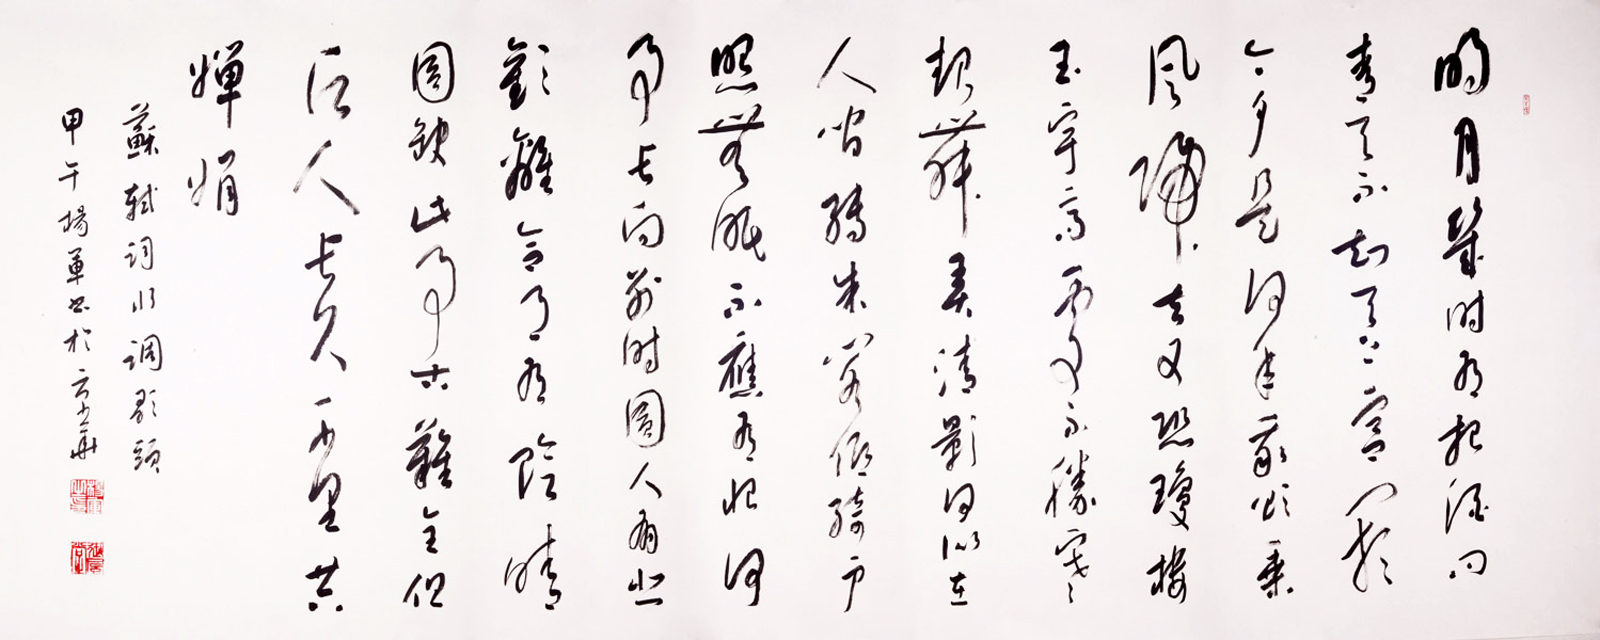 明月幾時有把酒問
青天不知天上宮闕
今夕是何年我欲乘
風歸去又恐瓊樓
玉宇高處不勝寒
起舞弄清影何似在
人間轉朱閣低綺戶
照無眠不應有恨何
事長向別時圓人有悲
歡離合月有陰晴
圓缺此事古難全但
願人長久千里共
嬋娟
蘇軾詞水調歌頭
甲午楊軍書於